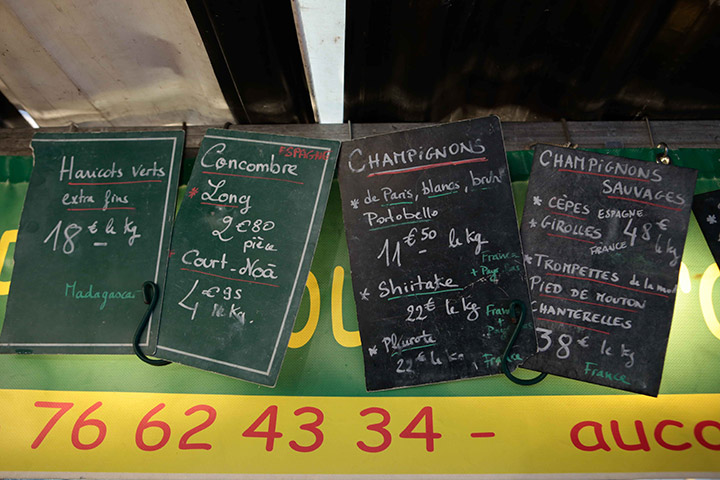 Haricots verts
extra fins
18€ - le kg
Madagascar
ESPAGNE
Concombre
* Long
2€80
pièce
* Court-Noä
4€95
le kg.
CHAMPIGNONS
* de Paris, blancs, brun
Portobello
11€50 le kg
France
+ Pays
* Shiitake
22€ le kg
France
+
* Pleurote
22€ le kg
France
CHAMPIGNONS
SAUVAGES
* CÈPES ESPAGNE
* GIROLLES 48€
FRANCE le kg
* TROMPETTES de la
PIED DE MOUTON
CHANTERELLES
38€ le kg
France
76 62 43 34 - auco